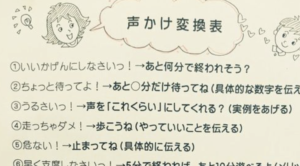 声かけ変換表
①いいかげんにしなさいっ！→あと何分で終われそう？
②ちょっと待ってよ！→あと○分だけ待ってね（具体的な数字を伝え
③うるさいっ！→声を「これくらい」にしてくれる？（実例をあげる）
④走っちゃダメ！→歩こうね（やっていいことを伝える）
⑤危ない！→止まってね（具体的に伝える）
⑥早く支度しなさいっ！→5分で終われば、あと10分遊べるよ